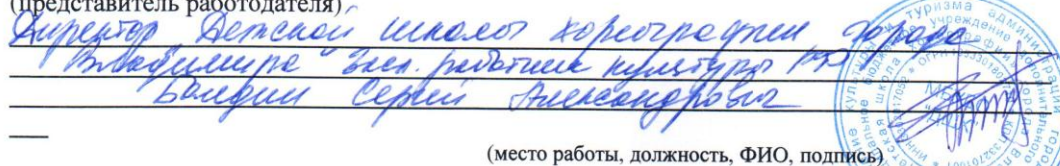 (представитель работодателя)
Директор Детской школы хореографии города
Владимира Засл. работник культуры РФ
Болдин Сергей Александрович
(место работы, должность, ФИО, подпись)